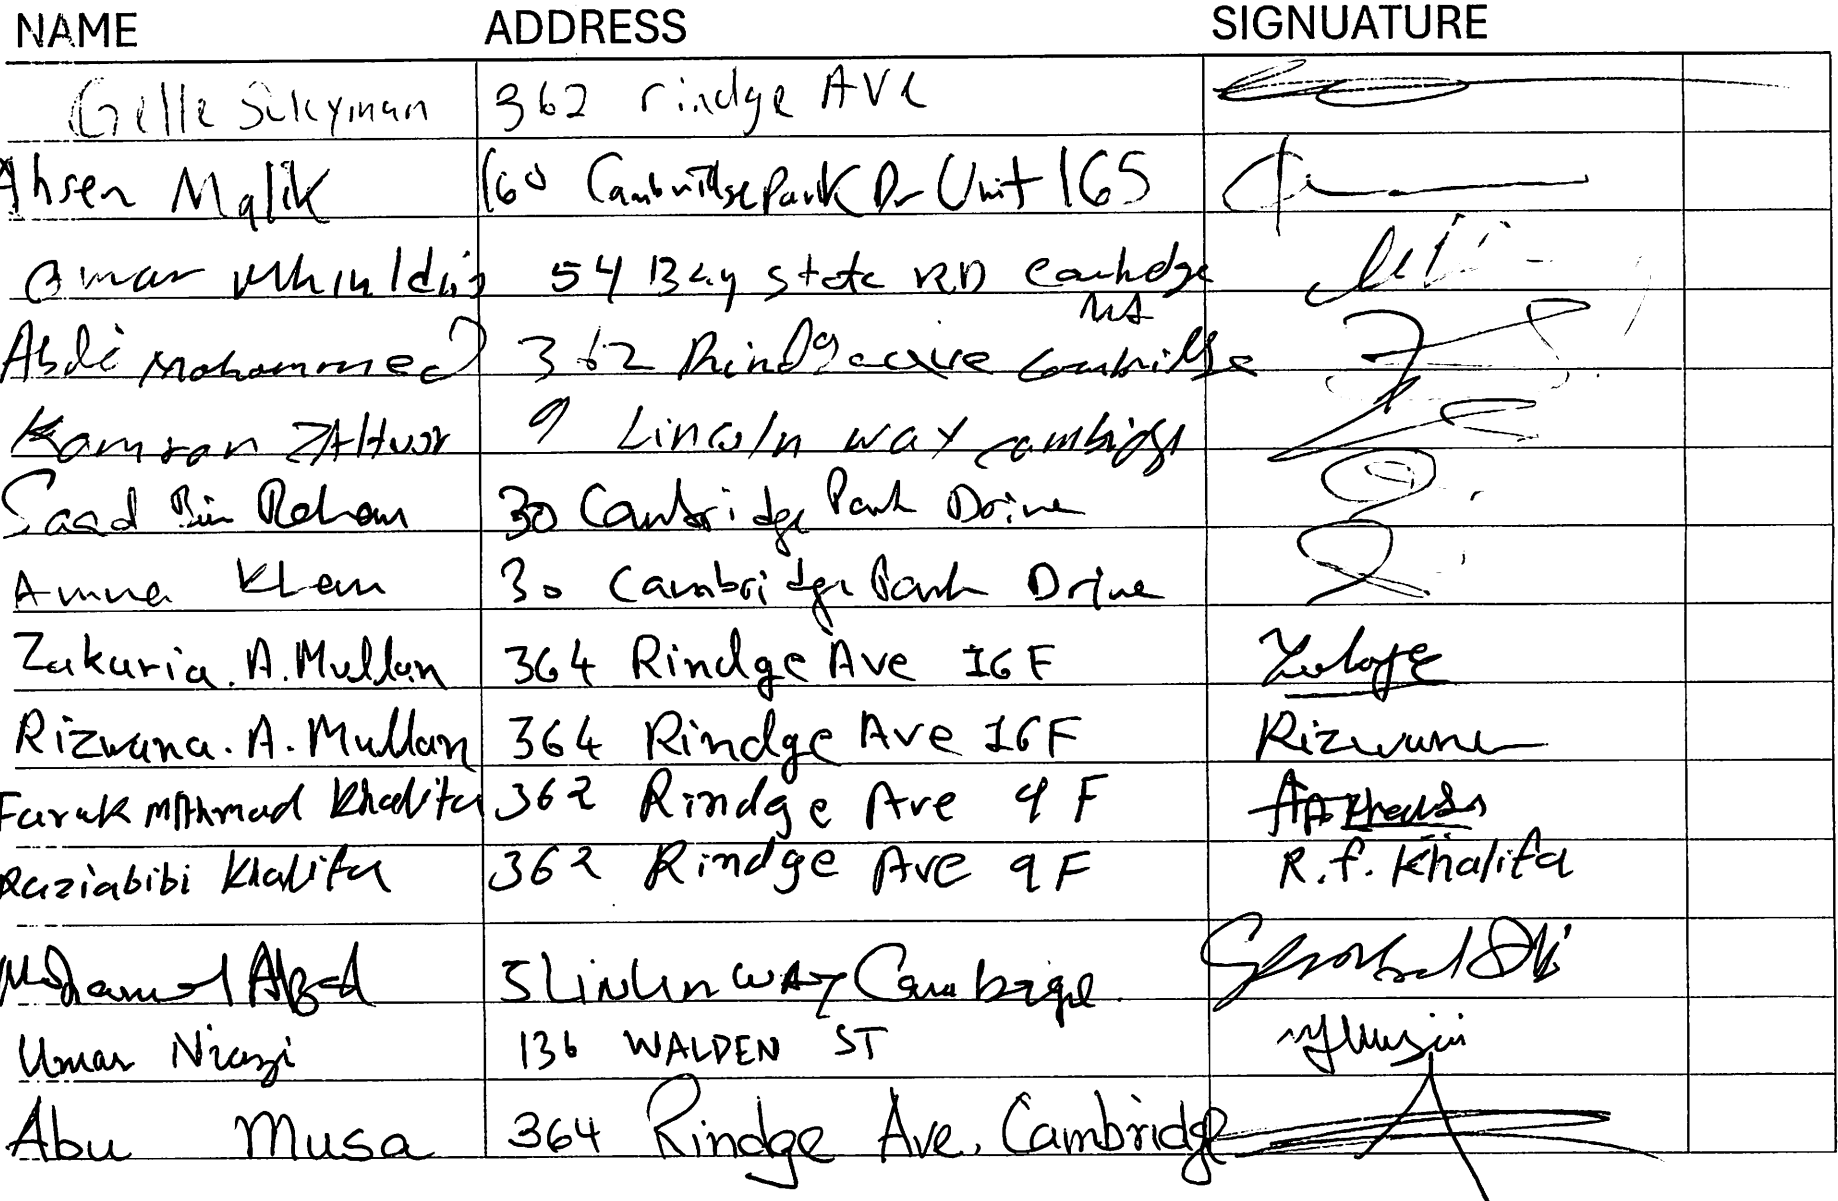 NAME ADDRESS SIGNUATURE
Gelle Suleyman 362 rindge AVE
Ahsen Malik 160 CambridgePark Dr Unit 165
Omar 54 Bay state RD Cambridge
MA
Abdi Mohammed 362 Rindge Cambridge
Kamran 9 Lincoln way cambidge
Saad Bin Rehan 30 Cambridge Park Drive
Amna Khan 30 Cambridge Park Drive
Zakaria.A.Mullan 364 Rindge Ave 16F
Rizwana.A.Mullan 364 Rindge Ave 16F Rizwana
Faruk Khalifa 362 Rindge Ave 9F
Raziabibi Khalifa 362 Rindge Ave 9F R.f.Khalifa
way
Umar Niazi 136 WALDEN ST
Abu Musa 364 Rindge Ave, Cambridge